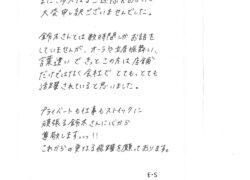 大変申し訳ございませんでした。
鈴木さんとは数時間しかお話を
していませんが、オーラや立居振舞い、
言葉遣いで きっとこの方は店舗
だけではなく会社で とても、とても
活躍されていると思いました。
プライベートも仕事もストイックに
頑張る鈴木さんに心から
尊敬します。っ!!
これからの更なる飛躍を願っております。
E・S